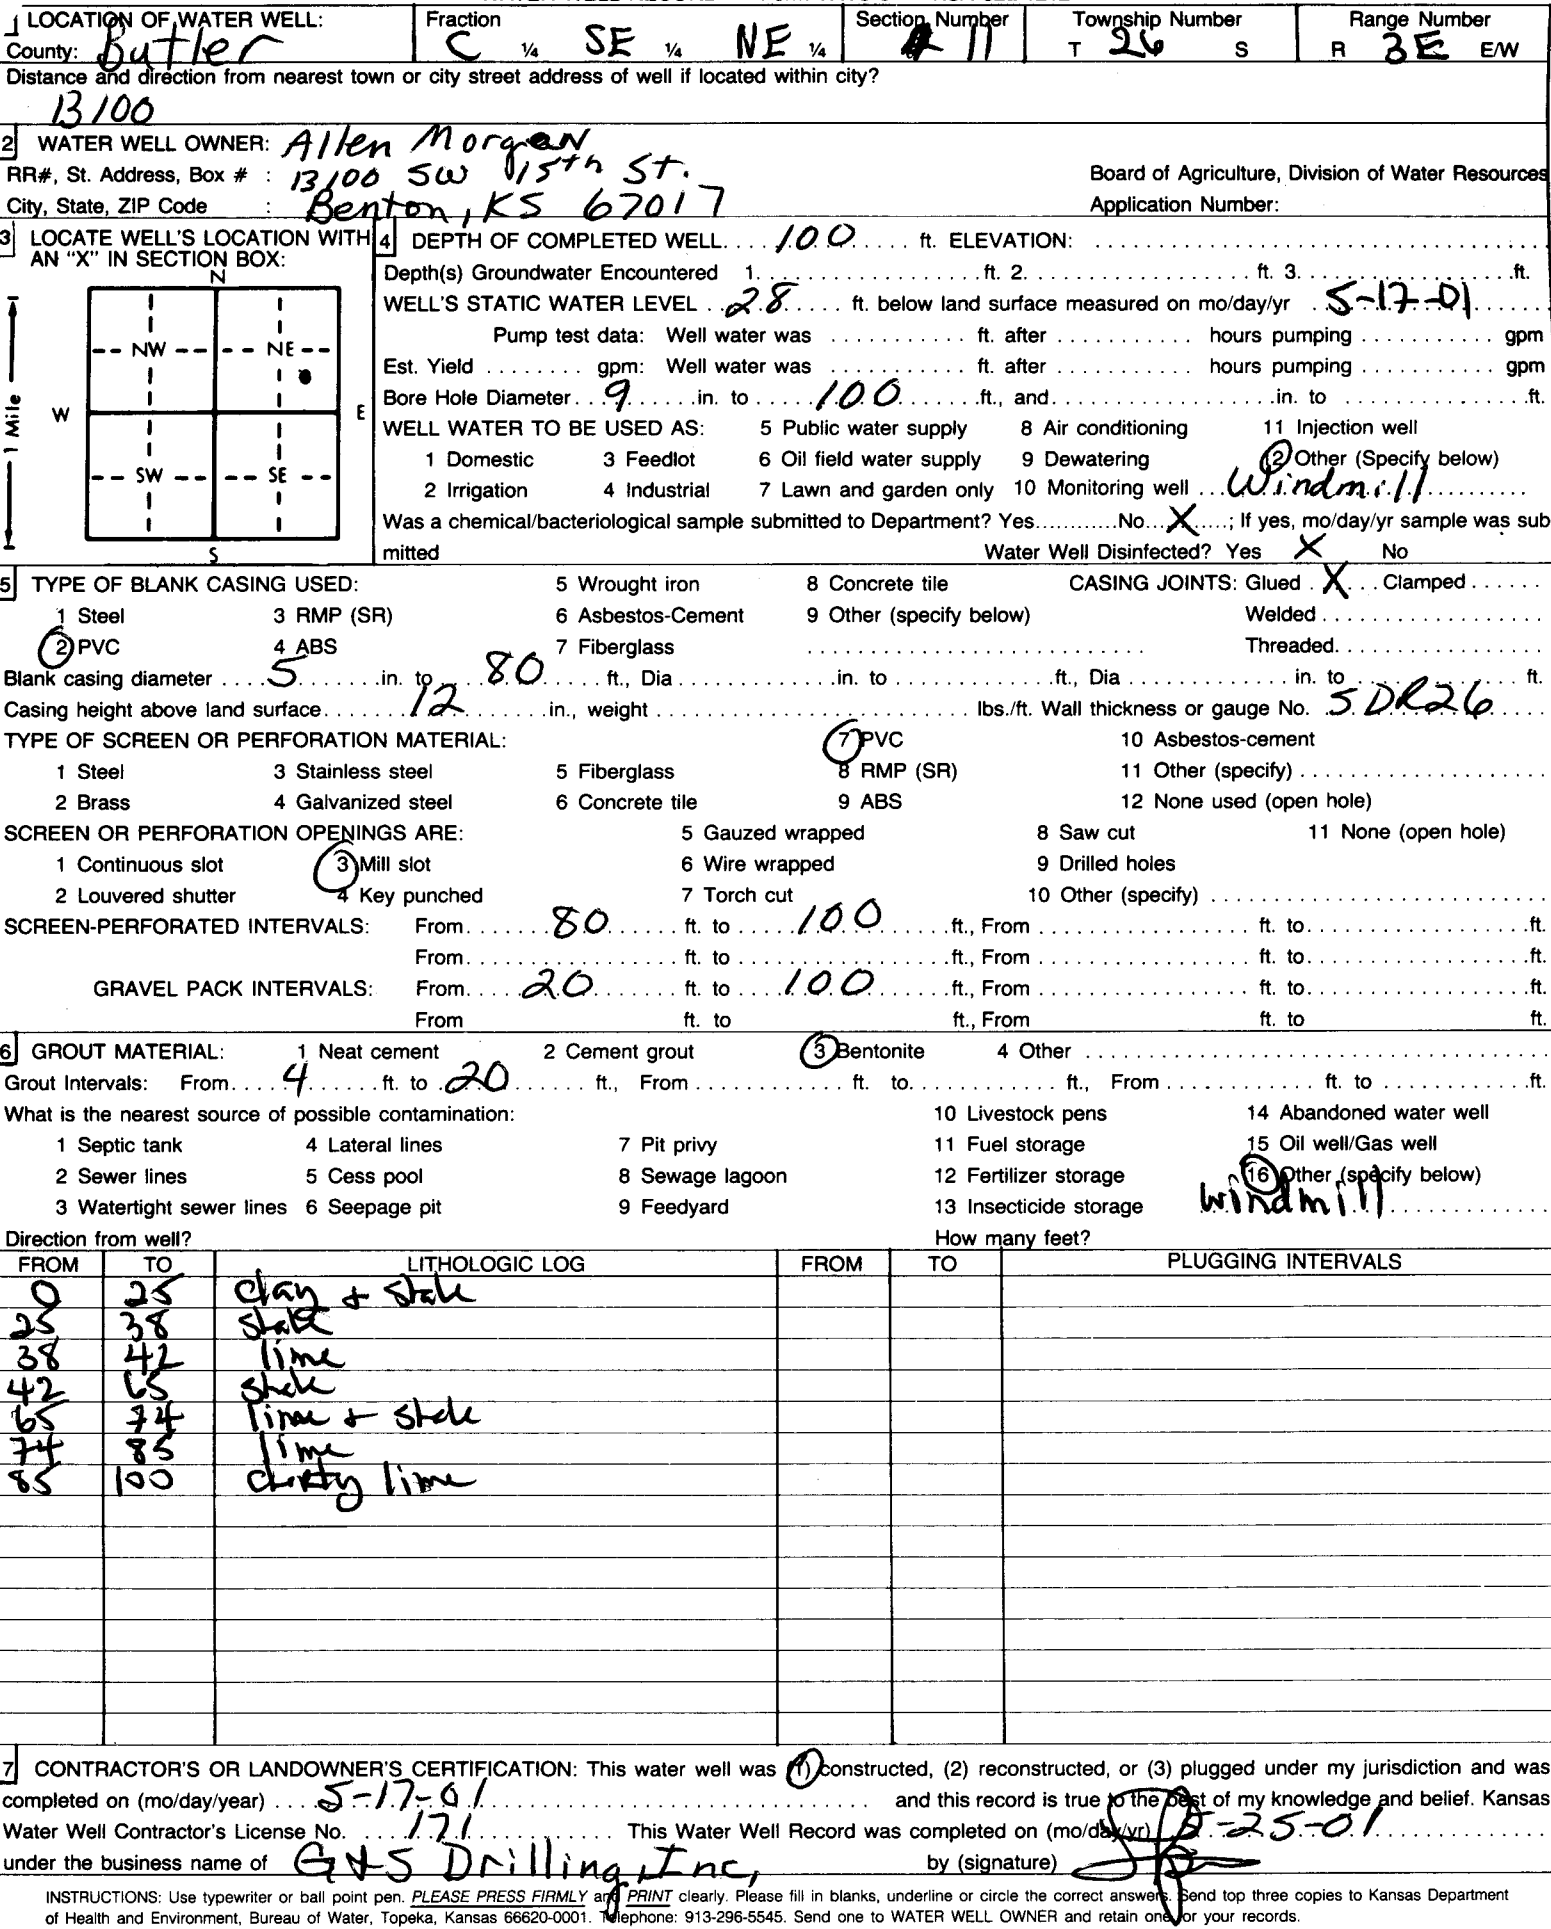 1 LOCATION OF WATER WELL: Fraction Section Number Township Number Range Number
County: Butler C ¼ SE ¼ NE ¼ 11 T 26 S R 3E E/W
Distance and direction from nearest town or city street address of well if located within city?
13100
2 WATER WELL OWNER: Allen Morgan
RR#, St. Address, Box # : 13100 SW 15th St. Board of Agriculture, Division of Water Resources
City, State, ZIP Code : Benton, KS 67017 Application Number:
3 LOCATE WELL'S LOCATION WITH AN "X" IN SECTION BOX:
N
NW NE
W E
SW SE
S
1 Mile
4 DEPTH OF COMPLETED WELL.... 100 .... ft. ELEVATION: ....
Depth(s) Groundwater Encountered 1. .... ft. 2. .... ft. 3. .... ft.
WELL'S STATIC WATER LEVEL .. 28 .... ft. below land surface measured on mo/day/yr .. 5-17-01
Pump test data: Well water was .... ft. after .... hours pumping .... gpm
Est. Yield .... gpm: Well water was .... ft. after .... hours pumping .... gpm
Bore Hole Diameter... 9 ....in. to .... 100 ....ft., and....in. to ....ft.
WELL WATER TO BE USED AS: 5 Public water supply 8 Air conditioning 11 Injection well
1 Domestic 3 Feedlot 6 Oil field water supply 9 Dewatering 12 Other (Specify below)
2 Irrigation 4 Industrial 7 Lawn and garden only 10 Monitoring well ... Windmill ....
Was a chemical/bacteriological sample submitted to Department? Yes....No... X ....; If yes, mo/day/yr sample was sub
mitted Water Well Disinfected? Yes X No
5 TYPE OF BLANK CASING USED: 5 Wrought iron 8 Concrete tile CASING JOINTS: Glued . X ... Clamped ....
1 Steel 3 RMP (SR) 6 Asbestos-Cement 9 Other (specify below) Welded ....
2 PVC 4 ABS 7 Fiberglass .... Threaded....
Blank casing diameter .... 5 ....in. to ... 80 .... ft., Dia ....in. to ....ft., Dia .... in. to .... ft.
Casing height above land surface.... 12 ....in., weight .... lbs./ft. Wall thickness or gauge No. . SDR26 ....
TYPE OF SCREEN OR PERFORATION MATERIAL: 7 PVC 10 Asbestos-cement
1 Steel 3 Stainless steel 5 Fiberglass 8 RMP (SR) 11 Other (specify) ....
2 Brass 4 Galvanized steel 6 Concrete tile 9 ABS 12 None used (open hole)
SCREEN OR PERFORATION OPENINGS ARE: 5 Gauzed wrapped 8 Saw cut 11 None (open hole)
1 Continuous slot 3 Mill slot 6 Wire wrapped 9 Drilled holes
2 Louvered shutter 4 Key punched 7 Torch cut 10 Other (specify) ....
SCREEN-PERFORATED INTERVALS: From.... 80 .... ft. to .... 100 ....ft., From .... ft. to ....ft.
From.... ft. to ....ft., From .... ft. to ....ft.
GRAVEL PACK INTERVALS: From.... 20 .... ft. to .... 100 ....ft., From .... ft. to ....ft.
From ft. to ft., From ft. to ft.
6 GROUT MATERIAL: 1 Neat cement 2 Cement grout 3 Bentonite 4 Other ....
Grout Intervals: From.... 4 ....ft. to . 20 .... ft., From .... ft. to.... ft., From .... ft. to ....ft.
What is the nearest source of possible contamination: 10 Livestock pens 14 Abandoned water well
1 Septic tank 4 Lateral lines 7 Pit privy 11 Fuel storage 15 Oil well/Gas well
2 Sewer lines 5 Cess pool 8 Sewage lagoon 12 Fertilizer storage 16 Other (specify below)
3 Watertight sewer lines 6 Seepage pit 9 Feedyard 13 Insecticide storage windmill ....
Direction from well? How many feet?
FROM TO LITHOLOGIC LOG FROM TO PLUGGING INTERVALS
0 25 clay + shale
25 38 shale
38 42 lime
42 65 shale
65 74 lime + shale
74 85 lime
85 100 lime
7 CONTRACTOR'S OR LANDOWNER'S CERTIFICATION: This water well was (1) constructed, (2) reconstructed, or (3) plugged under my jurisdiction and was
completed on (mo/day/year) .... 5-17-01 .... and this record is true to the best of my knowledge and belief. Kansas
Water Well Contractor's License No. .... 171 .... This Water Well Record was completed on (mo/day/yr) 5-25-01 ....
under the business name of G & S Drilling, Inc, by (signature)
INSTRUCTIONS: Use typewriter or ball point pen. PLEASE PRESS FIRMLY and PRINT clearly. Please fill in blanks, underline or circle the correct answers. Send top three copies to Kansas Department
of Health and Environment, Bureau of Water, Topeka, Kansas 66620-0001. Telephone: 913-296-5545. Send one to WATER WELL OWNER and retain one for your records.